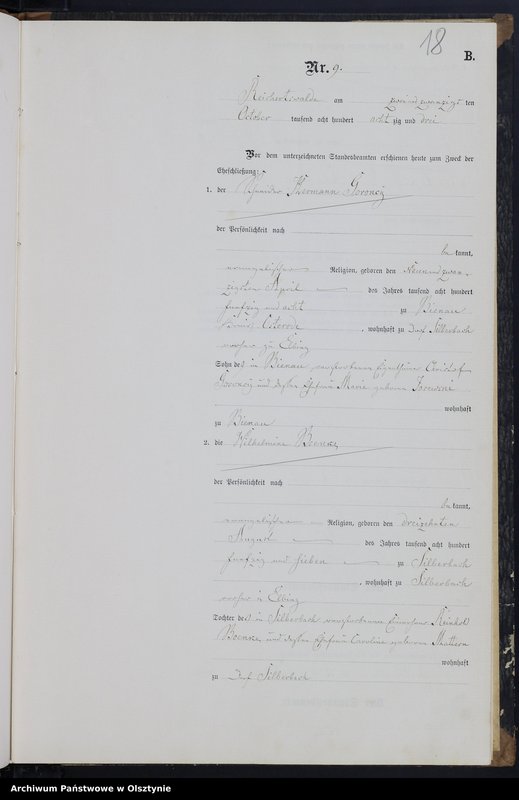 18
B.
Nr. 9.
Reichertswalde am zweiundzwanzigs ten
October tausend acht hundert acht zig und drei
Vor dem unterzeichneten Standesbeamten erschienen heute zum Zweck der
Eheschließung:
1. der Schneider Hermann
der Persönlichkeit nach
be kannt,
evangelischer Religion, geboren den Neunundzwan-
zigsten April des Jahres tausend acht hundert
fünfzig und acht zu Bienau
Kreis Osterode, wohnhaft zu Dorf Silberbach
vorher zu Elbing
Sohn des in Bienau verstorbenen Eigenthümer
und dessen Ehefrau Marie geborene
wohnhaft
zu Bienau
2. die Wilhelmine
der Persönlichkeit nach
be kannt,
evangelischer Religion, geboren den dreizehnten
August des Jahres tausend acht hundert
fünfzig und sieben zu Silberbach
, wohnhaft zu Silberbach
vorher in Elbing
Tochter des in Silberbach verstorbenen Einwohner
und dessen Ehefrau Caroline geborene Mattern
wohnhaft
zu Dorf Silberbach
Archiwum Państwowe w Olsztynie